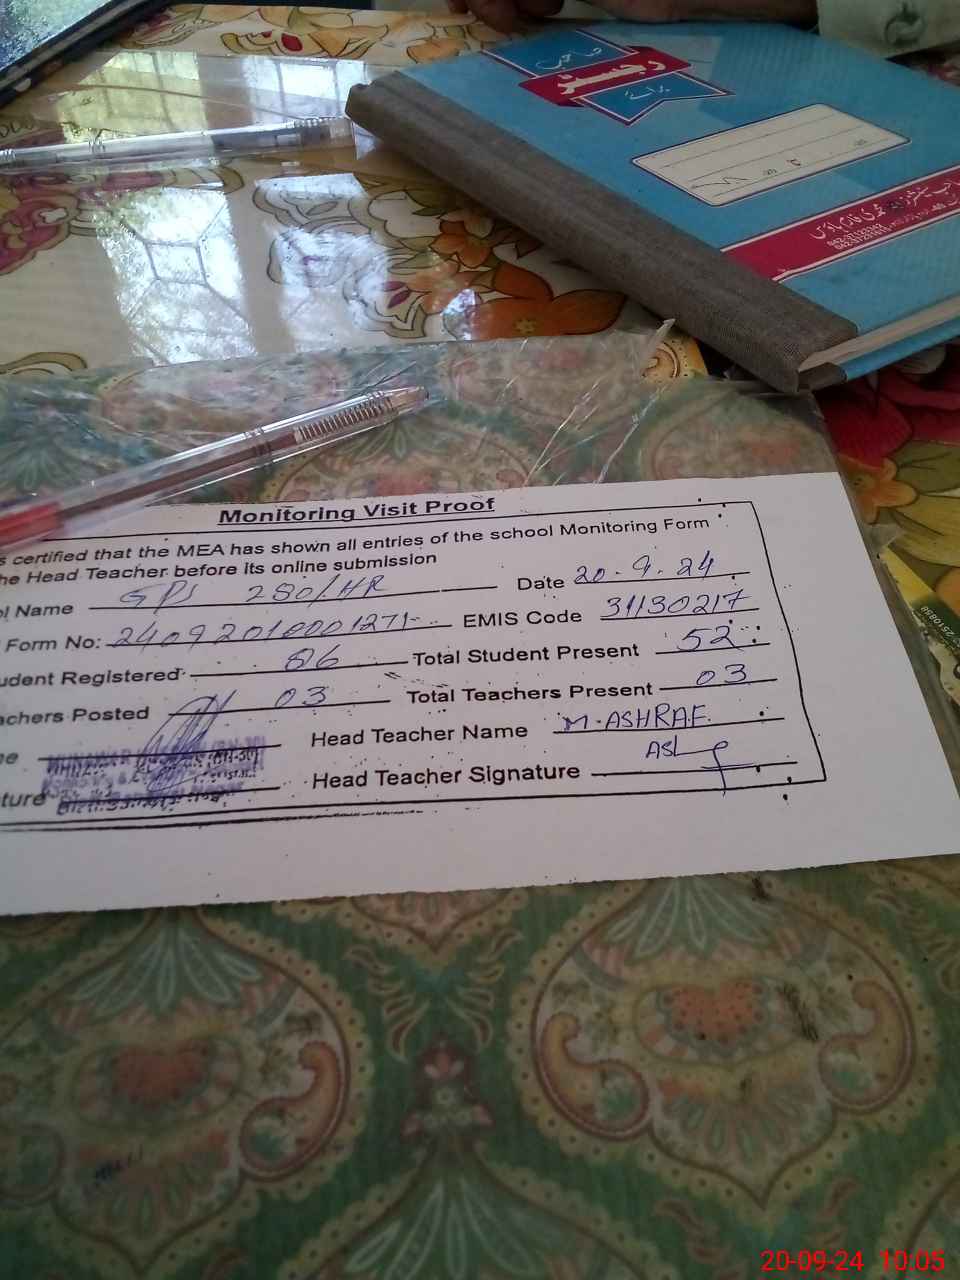 صاحب
رجسٹر
برائے
Monitoring Visit Proof
s certified that the MEA has shown all entries of the school Monitoring Form
he Head Teacher before its online submission
ol Name GPS 280/HR Date 20.9.24
Form No: 24092010001271 EMIS Code 31130217
udent Registered 86 Total Student Present 52
achers Posted 03 Total Teachers Present 03
me Head Teacher Name M.ASHRAF
ture Head Teacher Signature
2510858
20-09-24 10:05